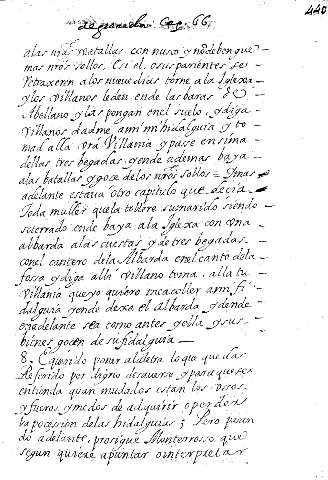 de granada Cap. 66.
440
alas nrãs vatallas con nusco y nõ deben que
mas nrõs sollos. Esi el, o sus parientes se
Vetraxeren alos nueve dias torne ala Iglexia
y los villanos leden ende las baras de
Abellano y las pongan enel suelo, y diga
Villanos dadme ami mi hidalguia y to
mad alla vrã Villania y pase en sima
dellas tres begadas. yende ademas baya
alas batallas y goce delos nrõs sollos = Y mas
adelante estava otro capitulo que decia.
Toda muller que la tollere su marido siendo
soterrado ende baya ala Iglexa con una
albarda a las cuestas y de tres begadas
con el cantero dela Albarda enel canto dela
fossa y diga alla Villano toma alla tu
Villania que yo quiero mea coller a mi fi
dalguia yende dexe el Albarda y dende
en adelante sea como antes y olla y sus
bienes gocen de su fidalguia
8. Querido poner ala letra lo que queda
Referido por digno de saverse y para que se
entienda quan mudados estan los usos
y fueros y modos de adquirir o perder
la posession delas hidalguias; Pero pasan
do adelante, prosigue Monterroso que
segun quiere apuntar o interpretar